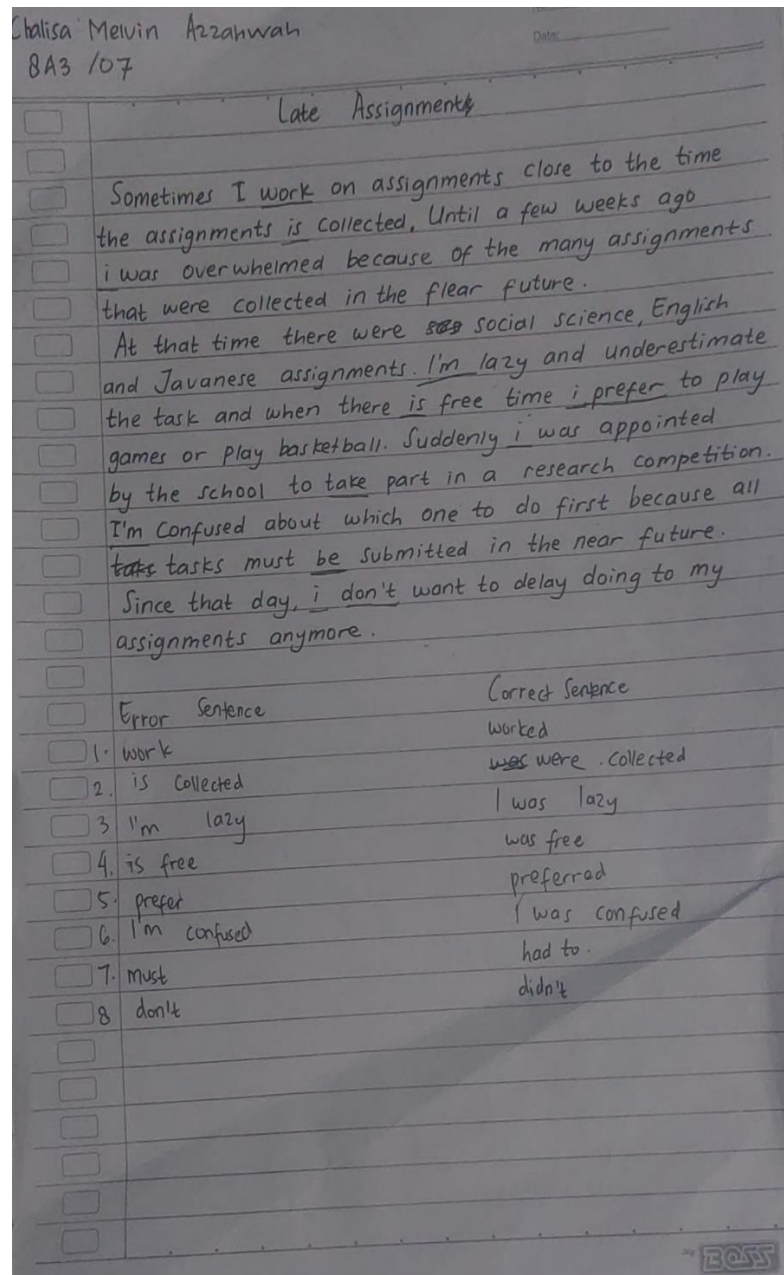 Chalisa Melvin Azzahwah
Date:
8A3 /07
Late Assignments
Sometimes I work on assignments close to the time
the assignments is collected. Until a few weeks ago
i was overwhelmed because of the many assignments
that were collected in the flear future.
At that time there were social science, English
and Javanese assignments. I'm lazy and underestimate
the task and when there is free time i prefer to play
games or play basketball. Suddenly i was appointed
by the school to take part in a research competition.
I'm confused about which one to do first because all
tasks must be submitted in the near future.
Since that day, i don't want to delay doing to my
assignments anymore.
Error Sentence Correct Sentence
1. work worked
2. is collected were collected
3 I'm lazy I was lazy
4. is free was free
5. prefer preferred
6. I'm confused I was confused
7. must had to.
8 don't didn't
BOSS